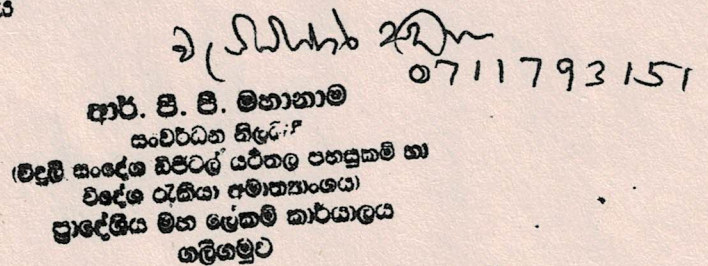 0711793151
ආර්. පී. පී. මහානාම
සංවර්ධන නිලධාරී
(විදුලි සංදේශ ඩිජිටල් යටිතල පහසුකම් හා
විදේශ රැකියා අමාත්‍යාංශය)
ප්‍රාදේශීය මහ ලේකම් කාර්යාලය
ගලිගමුව